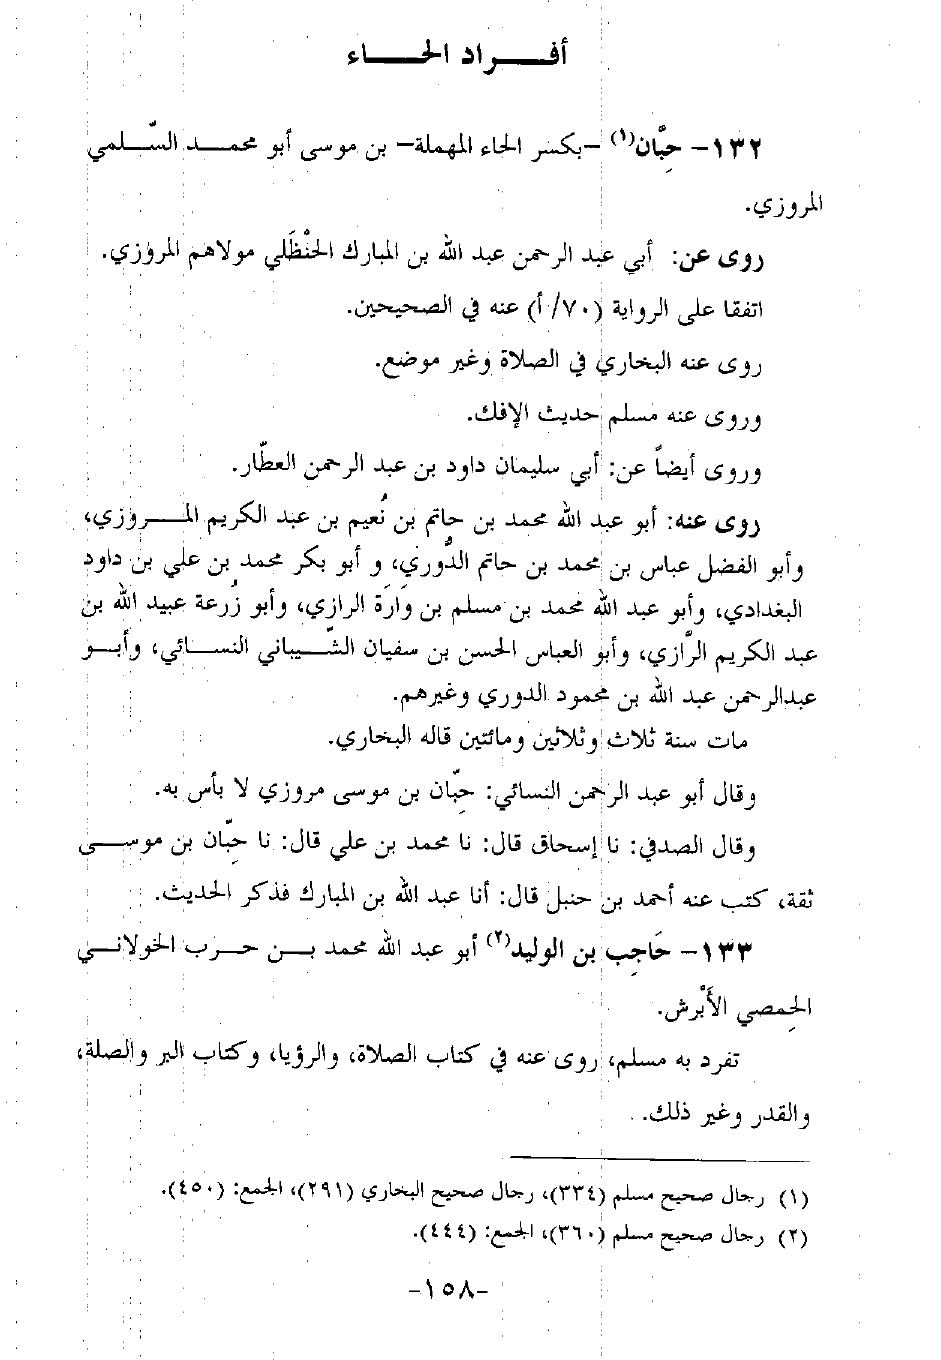 أفــراد الحــاء
١٣٢- حِبَّان(١) -بكسر الحاء المهملة- بن موسى أبو محمـد السُّـلمي
المروزي.
روى عن: أبي عبد الرحمن عبد الله بن المبارك الحَنْظَلي مولاهم المروزي.
اتفقا على الرواية (٧٠/أ) عنه في الصحيحين.
روى عنه البخاري في الصلاة وغير موضع.
وروى عنه مسلم حديث الإفك.
وروى أيضاً عن: أبي سليمان داود بن عبد الرحمن العطّار.
روى عنه: أبو عبد الله محمد بن حاتم بن نُعيم بن عبد الكريم المـروزي،
وأبو الفضل عباس بن محمد بن حاتم الدُّوري، و أبو بكر محمد بن علي بن داود
البغدادي، وأبو عبد الله محمد بن مسلم بن وَارَة الرازي، وأبو زُرعة عبيد الله بن
عبد الكريم الرَّازي، وأبو العباس الحسن بن سفيان الشَّـيباني النسـائي، وأبـو
عبدالرحمن عبد الله بن محمود الدوري وغيرهم.
مات سنة ثلاث وثلاثين ومائتين قاله البخاري.
وقال أبو عبد الرحمن النسائي: حِبَّان بن موسى مروزي لا بأس به.
وقال الصدفي: نا إسحاق قال: نا محمد بن علي قال: نا حِبَّان بن موسـى
ثقة، كتب عنه أحمد بن حنبل قال: أنا عبد الله بن المبارك فذكر الحديث.
١٣٣- حَاجِب بن الوليد(٢) أبو عبد الله محمد بـن حـرب الخولانـي
الحِمصي الأَبْرش.
تفرد به مسلم، روى عنه في كتاب الصلاة، والرؤيا، وكتاب البر والصلة،
والقدر وغير ذلك.
(١) رجال صحيح مسلم (٣٣٤)، رجال صحيح البخاري (٢٩١)، الجمع: (٤٥٠).
(٢) رجال صحيح مسلم (٣٦٠)، الجمع: (٤٤٤).
-١٥٨-